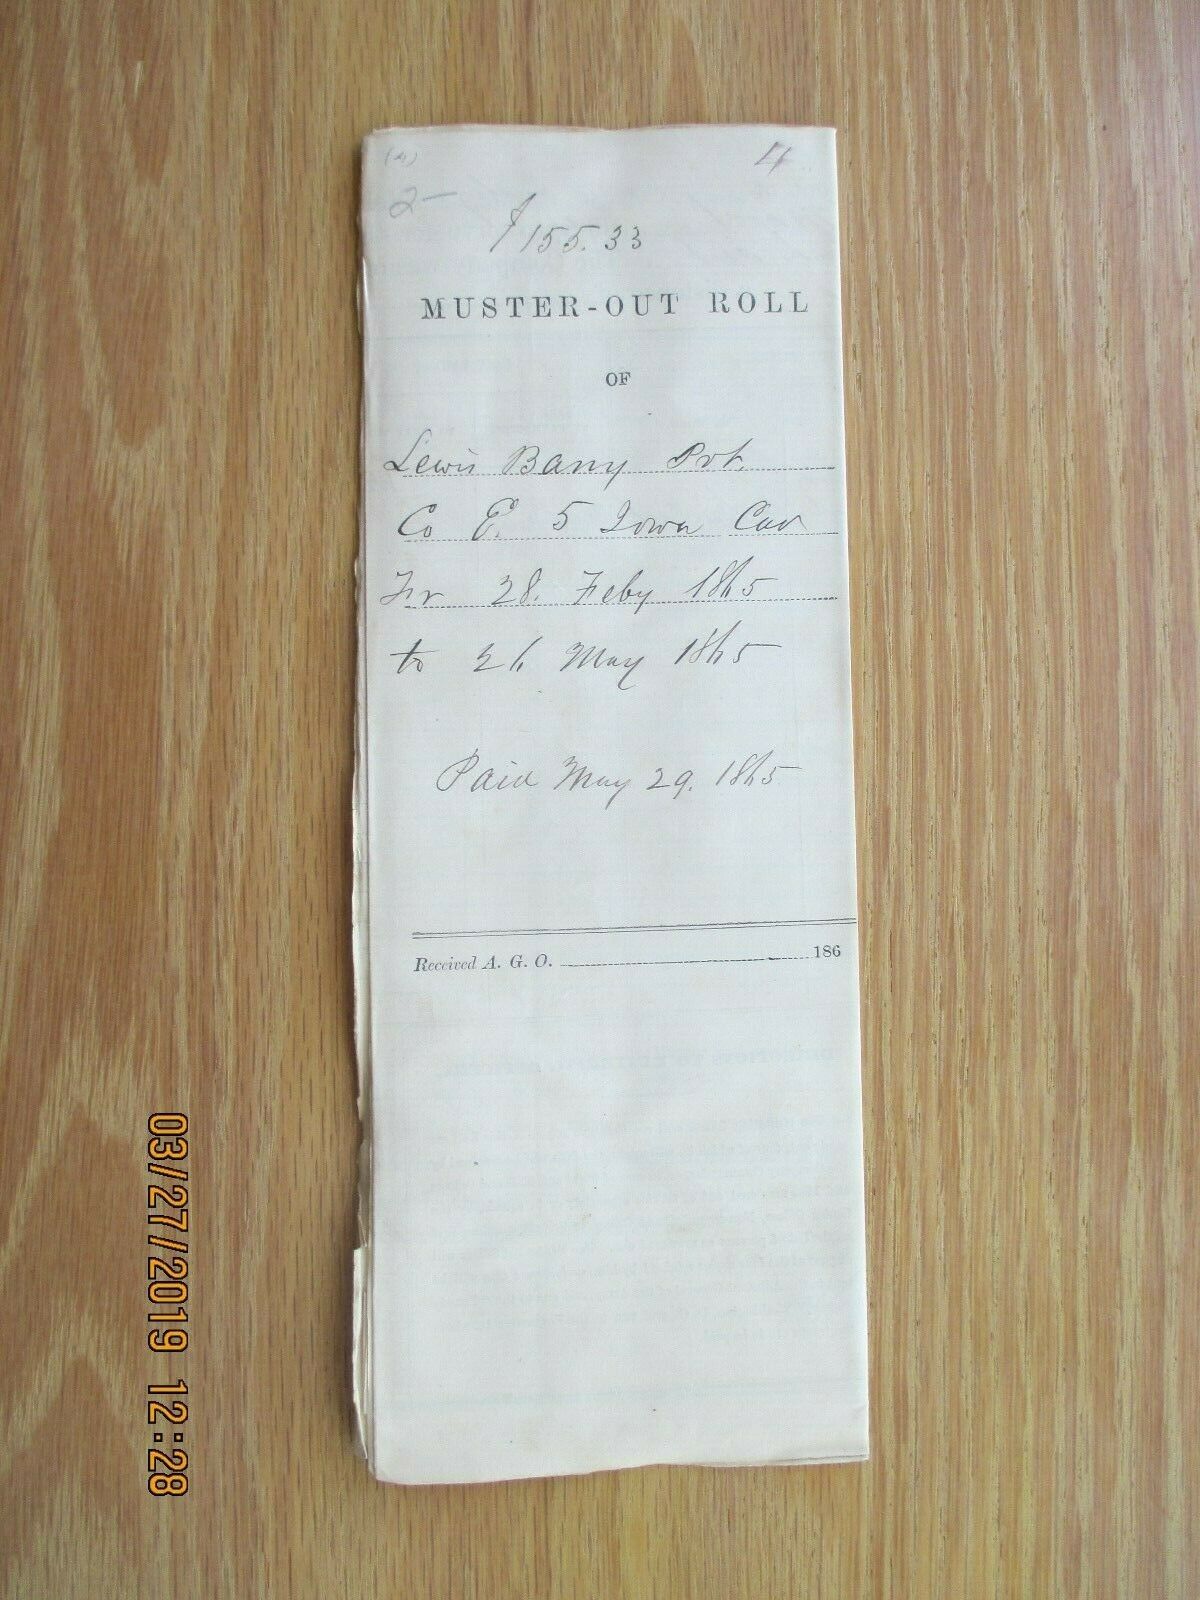 (4)
4
2-
$155.33
MUSTER-OUT ROLL
OF
Lewis Barry Pvt.
Co E. 5 Iowa Cav
Fr 28. Feby 1865
to 26 May 1865
Paid May 29. 1865
Received A. G. O. 186
03/27/2019 12:28